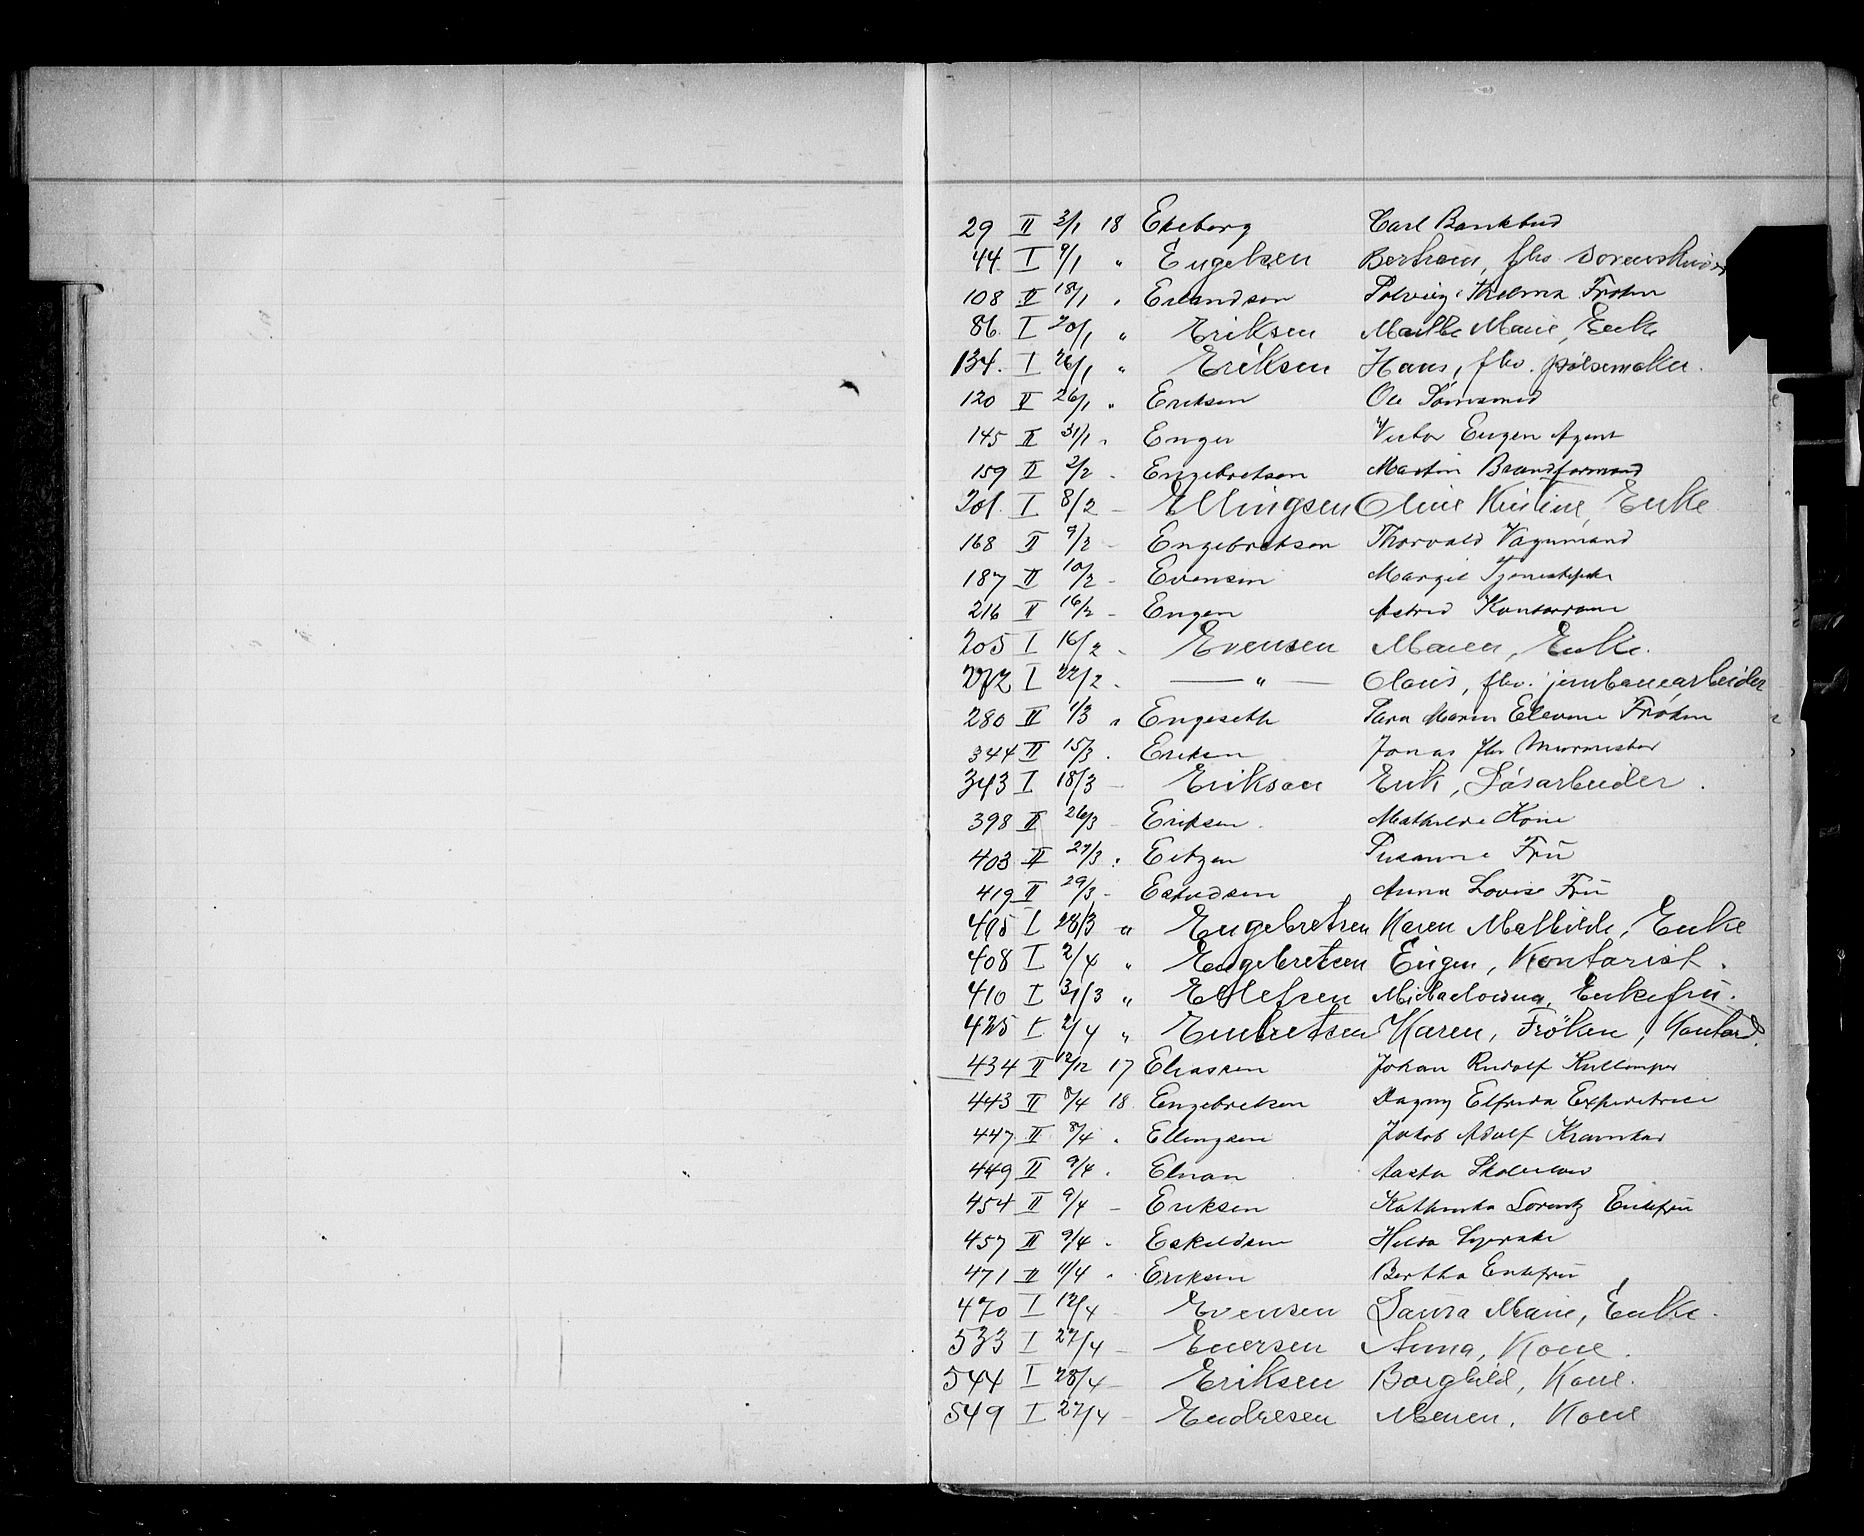 29 II 3/1 18 Ekeborg Carl Bankbud
44 I 9/1 " Engelsen Bertram, fhv.
108 II 18/1 " Erlandsen Solveig Thelma Frøken
86 I 20/1 " Eriksen Marie, Enke
134. I 26/1 " Eriksen Hans, fhv. pølsemaker.
120 II 26/1 " Eriksen Ole
145 II 31/1 " Enger Victor Eugen Agent
159 II 2/2 - Engebretsen Martin Brandformand
201. I 8/2 - Ellingsen Oline Kristine, Enke
168 II 9/2 - Engebretsen Thorvald Vognmand
187 II 10/2 - Evensen Margit
216 II 16/2 - Engen Astrid
205 I 16/2 - Evensen Maren, Enke.
272 I 22/2 - — " — Claus, fhv. jernbanearbeider
280 II 1/3 " Engeseth Sara Maren Elevine Frøken
344 II 15/3 . Eriksen Jonas fhv Murmester
343 I 18/3 - Eriksen Erik, Løsarbeider.
398 II 26/3 - Eriksen Mathilde Kone
403 II 27/3 . Eitzen Susanne Fru
419 II 29/3 - Anna Lovise Fru
405 I 28/3 " Engebretsen Karen Mathilde, Enke
408 I 2/4 " Engebretsen Eugen, Kontorist.
410 I 31/3 " Ellefsen Enkefru.
425 I 2/4 " Embretsen Karen, Frøken, Kontord.
434 II 12/12 17 Eliassen Johan Rudolf Kullemper
443 II 8/4 18 Engebretsen Dagny Elfrida Expeditrice
447 II 8/4 . Ellingsen Jakob Adolf
449 II 9/4 . Elnan Aasta
454 II 9/4 - Eriksen Kathinka Lorentz Enkefru
457 II 9/4 . Eskildsen Hilda
471 II 11/4 . Eriksen Bertha Enkefru
470 I 12/4 - Evensen Laura Marie, Enke.
533 I 27/4 - Enersen Anna, Kone.
544 I 28/4 - Eriksen Borghild, Kone.
549 I 27/4 - Endresen Maren, Kone